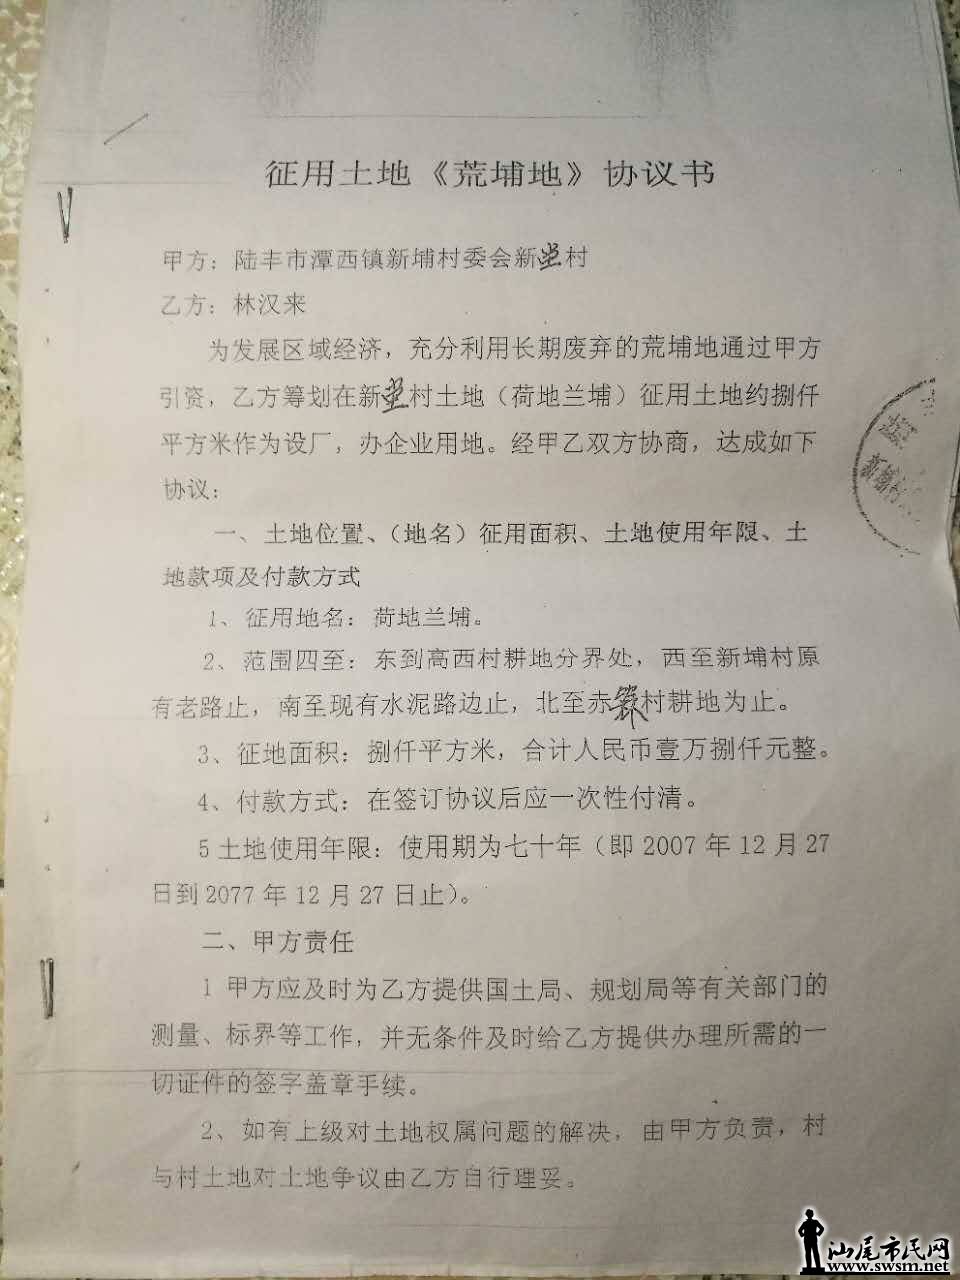 征用土地《荒埔地》协议书
甲方：陆丰市潭西镇新埔村委会新村
乙方：林汉来
为发展区域经济，充分利用长期废弃的荒埔地通过甲方
引资，乙方筹划在新村土地（荷地兰埔）征用土地约捌仟
平方米作为设厂，办企业用地。经甲乙双方协商，达成如下
协议：
一、土地位置、（地名）征用面积、土地使用年限、土
地款项及付款方式
1、征用地名：荷地兰埔。
2、范围四至：东到高西村耕地分界处，西至新埔村原
有老路止，南至现有水泥路边止，北至赤村耕地为止。
3、征地面积：捌仟平方米，合计人民币壹万捌仟元整。
4、付款方式：在签订协议后应一次性付清。
5 土地使用年限：使用期为七十年（即 2007 年 12 月 27
日到 2077 年 12 月 27 日止）。
二、甲方责任
1 甲方应及时为乙方提供国土局、规划局等有关部门的
测量、标界等工作，并无条件及时给乙方提供办理所需的一
切证件的签字盖章手续。
2、如有上级对土地权属问题的解决，由甲方负责，村
与村土地对土地争议由乙方自行理妥。
新埔村
汕尾市民网
www.swsm.net